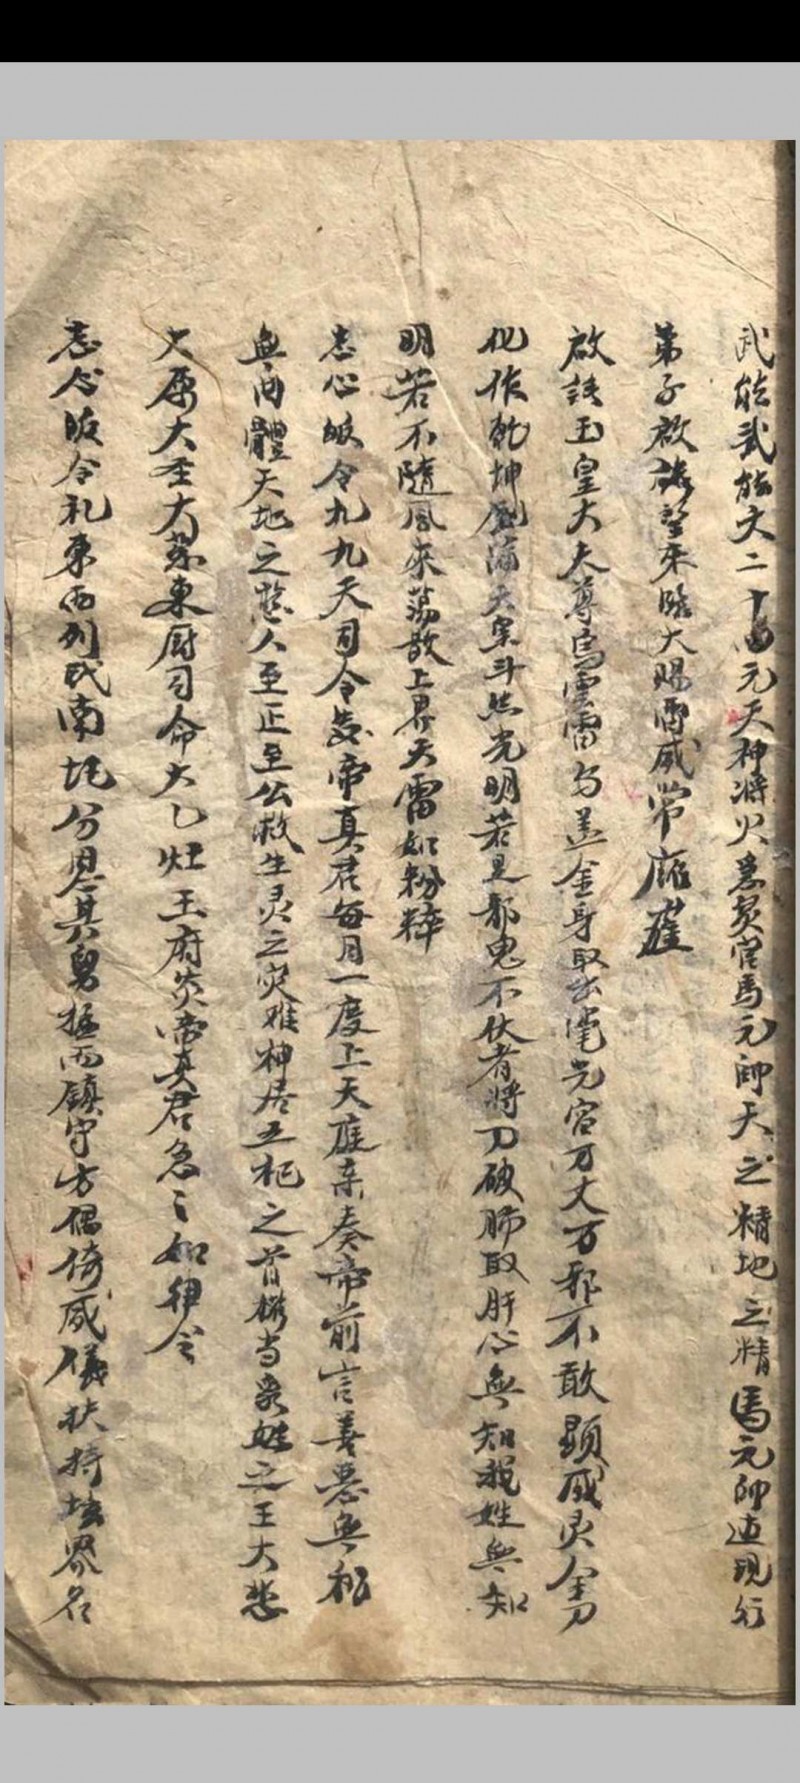 武能武能文二十四元天神將火忌炎官馬元帥天之精地之精馬元帥速現行
弟子啟請望來臨大賜雷威常雁䧹
啟請玉皇大天尊烏雲雷与盖金身取出毫光容万丈万邪不敢顕威灵金剪
化作乾坤劍滿天星斗照光明若是邪鬼不伏者將刀破肺取肝心無知我姓無知
明若不隨風來蕩散上界天雷如粉粹
志心皈令九九天司令炎帝真君每月一度上天庭亲奏帝前言善惡無私
無向體天地之慈人至正至公救生灵之灾难神居五杞之首授当衆姓之王大悲
大愿大圣大慈東厨司命大乙灶王府炎帝真君急〻如律令
志心皈令礼東西列民南北分恩其勇猛而鎮守方偶倚威儀扶持坛界名